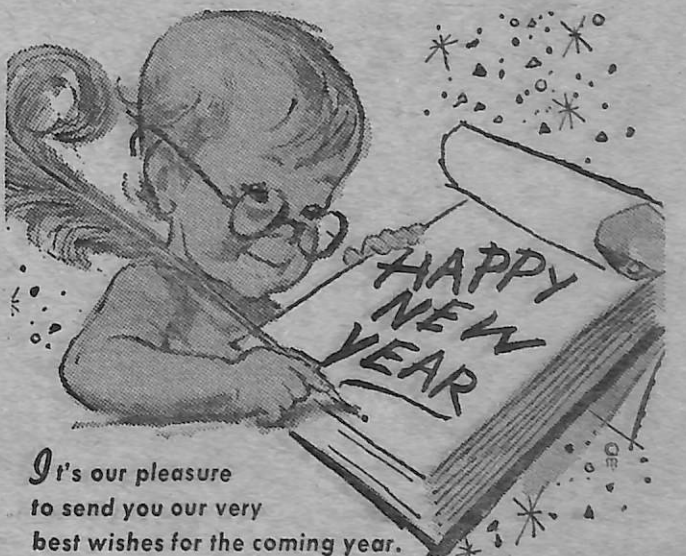 HAPPY
NEW
YEAR
It's our pleasure
to send you our very
best wishes for the coming year.